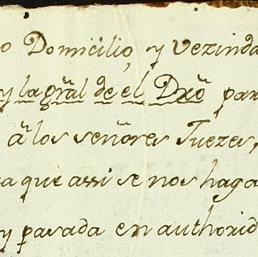 o Domicilio, y Vezinda
y la gral de el Dro par
a los señores Juezes,
a que assi se nos haga
y pasada en authorid